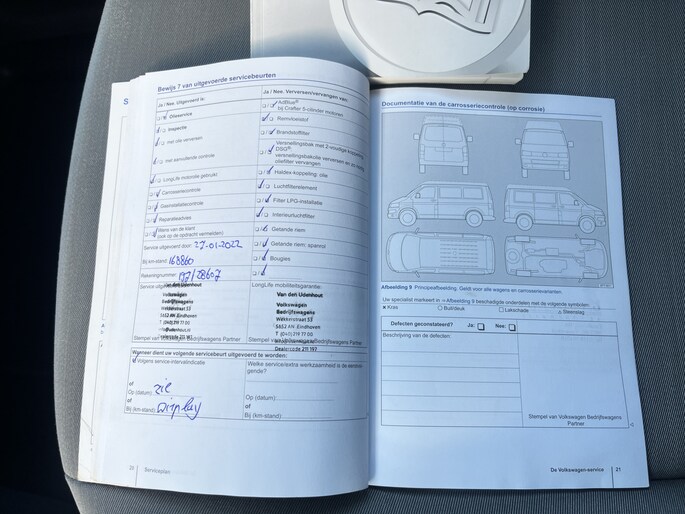 Bewijs 7 van uitgevoerde servicebeurten
Ja / Nee. Uitgevoerd is:
Olieservice
Inspectie
met olie verversen
met aanvullende controle
LongLife-motorolie gebruikt
Carrosseriecontrole
Gasinstallatiecontrole
Reparatieadvies
Wens van de klant
(ook op de opdracht vermelden)
Service uitgevoerd door: 27-01-2022
Bij km-stand: 163860
Rekeningnummer: 197/28607
Service uitgevoerd
Van den Udenhout
Volkswagen
Bedrijfswagens
Wekkerstraat 53
5652 AN Eindhoven
T (040) 219 77 00
Stempel van Volkswagen Bedrijfswagens Partner
Ja / Nee. Verversen/vervangen van:
AdBlue®
bij Crafter 5-cilinder motoren
Remvloeistof
Brandstoffilter
Versnellingsbak met 2-voudige koppeling
DSG®:
versnellingsbakolie verversen en
oliefilter vervangen
Haldex-koppeling: olie
Luchtfilterelement
Filter LPG-installatie
Interieurluchtfilter
Getande riem
Getande riem: spanrol
Bougies
LongLife mobiliteitsgarantie:
Van den Udenhout
Volkswagen
Bedrijfswagens
Wekkerstraat 53
5652 AN Eindhoven
T (040) 219 77 00
Stempel van Volkswagen Bedrijfswagens Partner
Dealercode 211 197
Wanneer dient uw volgende servicebeurt uitgevoerd te worden:
Volgens service-intervalindicatie
of
Op (datum): zie
of
Bij (km-stand): Display
Welke service/extra werkzaamheid is de eerstvol-
gende?
Op (datum):
of
Bij (km-stand):
20 Serviceplan
Documentatie van de carrosseriecontrole (op corrosie)
Afbeelding 9 Principeafbeelding. Geldt voor alle wagens en carrosserievarianten.
Uw specialist markeert in → Afbeelding 9 beschadigde onderdelen met de volgende symbolen:
× Kras
○ Buil/deuk
□ Lakschade
△ Steenslag
Defecten geconstateerd? Ja: Nee:
Beschrijving van de defecten:
Stempel van Volkswagen Bedrijfswagens
Partner
De Volkswagen-service 21